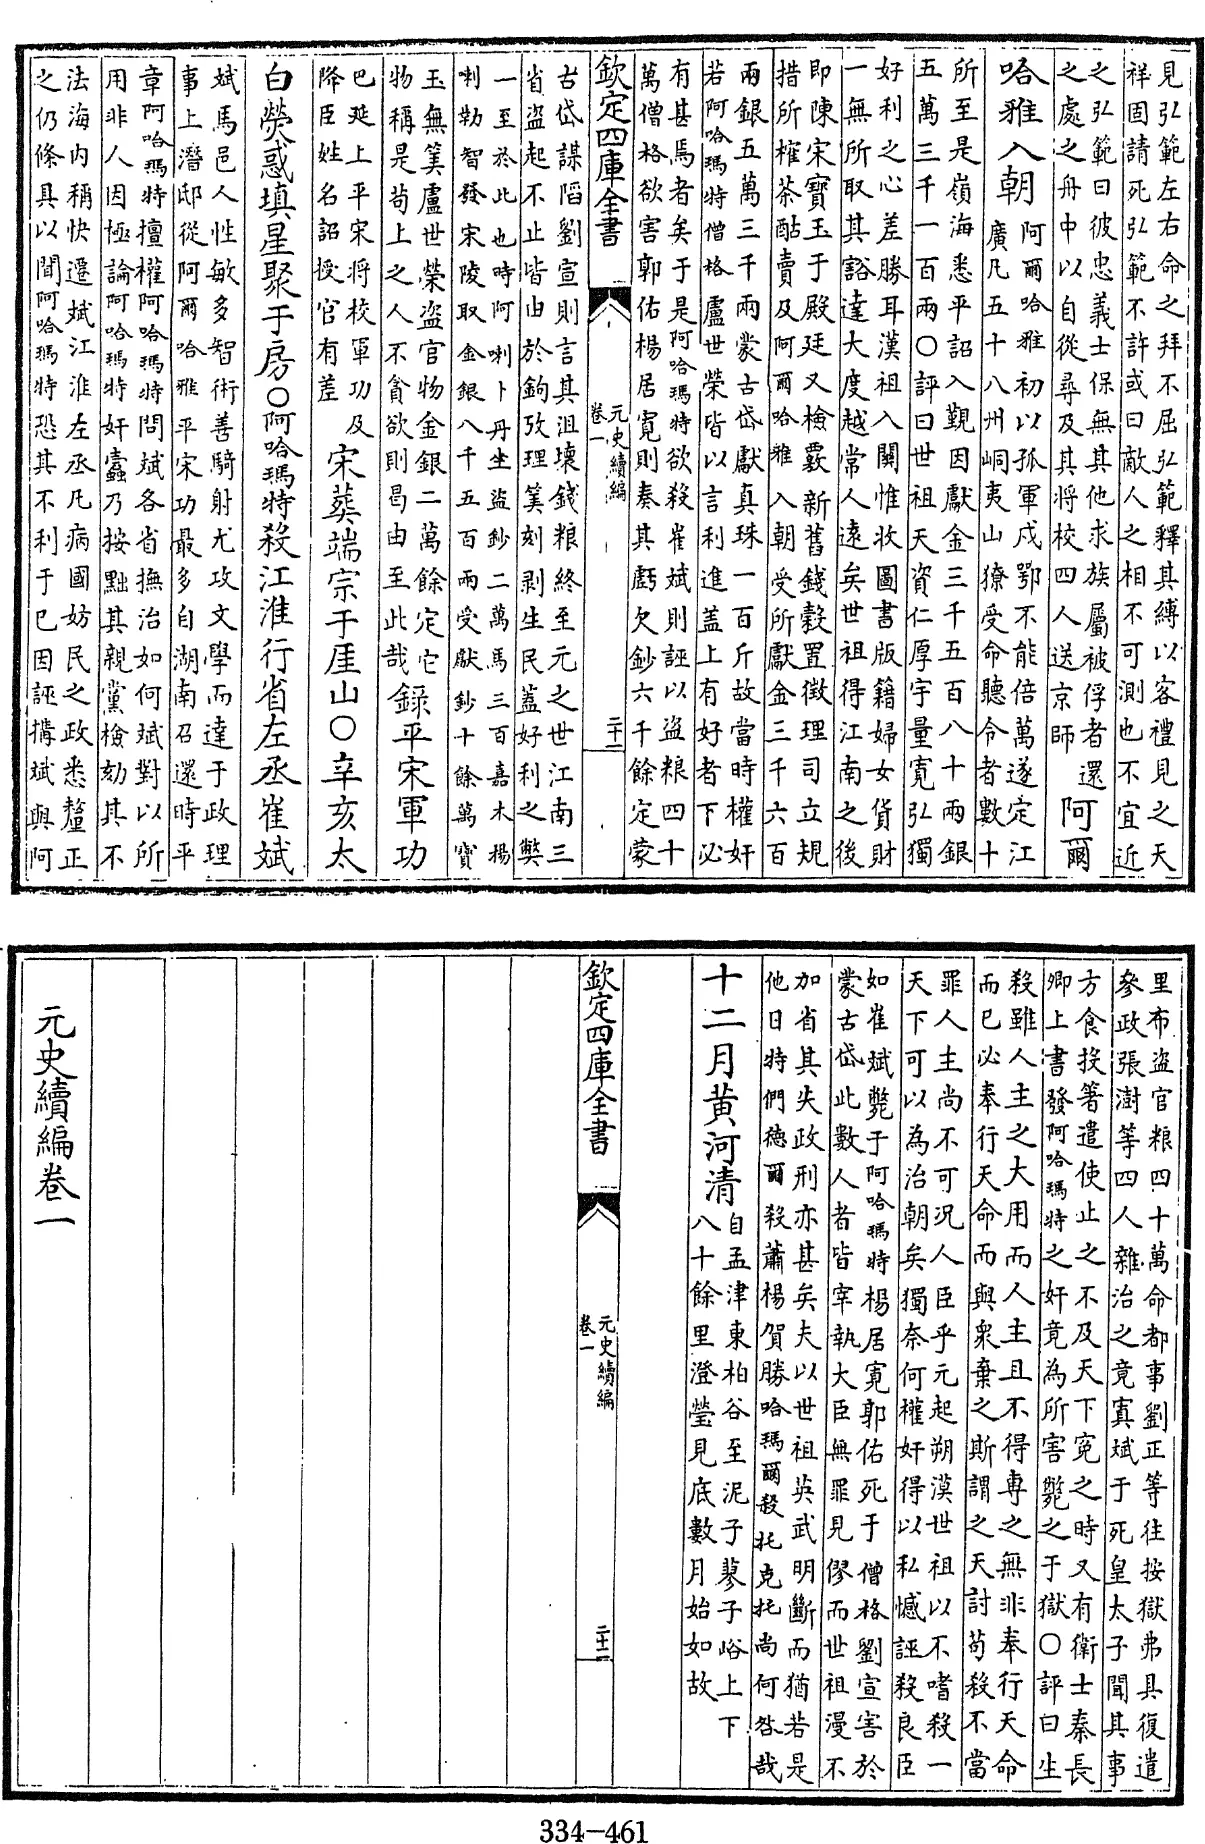 見弘範左右命之拜不屈弘範釋其縛以客禮見之天
祥固請死弘範不許或曰敵人之相不可測也不宜近
之弘範曰彼忠義士保無其他求族屬被俘者還
之處之舟中以自從尋及其將校四人送京師
阿爾
哈雅入朝
阿爾哈雅初以孤軍戍鄂不能倍萬遂定江
廣凡五十八州峒夷山獠受命聽令者數十
所至是嶺海悉平詔入觀因獻金三千五百八十兩銀
五萬三千一百兩○評曰世祖天資仁厚宇量寬弘獨
好利之心差勝耳漢祖入關惟收圖書版籍婦女貨財
一無所取其豁達大度越常人遠矣世祖得江南之後
即陳宋寶玉于殿廷又檢覈新舊錢穀置徵理司立規
措所榷茶酤賣及阿爾哈雅入朝受所獻金三千六百
兩銀五萬三千兩蒙古岱獻真珠一百斤故當時權奸
若阿哈瑪特僧格盧世榮皆以言利進蓋上有好者下必
有甚焉者矣于是阿哈瑪特欲殺崔斌則誣以盜粮四十
萬僧格欲害郭佑楊居寬則奏其虧欠鈔六千餘定蒙
欽定四庫全書
元史續編
卷一
二十一
古岱謀陷劉宣則言其沮壞錢粮終至元之世江南三
省盜起不止皆由於鉤攷理筭刻剥生民蓋好利之獘
一至於此也時阿喇卜丹坐盜鈔二萬馬三百嘉木楊
喇勒智發宋陵取金銀八千五百兩受獻鈔十餘萬寶
玉無筭盧世榮盜官物金銀二萬餘定它
物稱是苟上之人不貪欲則曷由至此哉
録平宋軍功
巴延上平宋將校軍功及
降臣姓名詔授官有差
宋葬端宗于厓山○辛亥太
白熒惑填星聚于房○阿哈瑪特殺江淮行省左丞崔斌
斌馬邑人性敏多智術善騎射尤攻文學而達于政理
事上潛邸從阿爾哈雅平宋功最多自湖南召還時平
章阿哈瑪特擅權阿哈瑪特問斌各省撫治如何斌對以所
用非人因極論阿哈瑪特奸蠹乃按黜其親黨檢劾其不
法海内稱快遷斌江淮左丞凡病國妨民之政悉釐正
之仍條具以聞阿哈瑪特恐其不利于已因誣搆斌與阿
里布盜官粮四十萬命都事劉正等往按獄弗具復遣
參政張澍等四人雜治之竟寘斌于死皇太子聞其事
方食投箸遣使止之不及天下寃之時又有衛士秦長
卿上書發阿哈瑪特之奸竟為所害斃之于獄○評曰生
殺雖人主之大用而人主且不得專之無非奉行天命
而已必奉行天命而與衆棄之斯謂之天討苟殺不當
罪人主尚不可況人臣乎元起朔漠世祖以不嗜殺一
天下可以為治朝矣獨奈何權奸得以私憾誣殺良臣
如崔斌斃于阿哈瑪特楊居寬郭佑死于僧格劉宣害於
蒙古岱此數人者皆宰執大臣無罪見僇而世祖漫不
加省其失政刑亦甚矣夫以世祖英武明斷而猶若是
他日特們德爾殺蕭楊賀勝哈瑪爾殺托克托尚何咎哉
十二月黄河清
自孟津東柏谷至泥子蓼子峪上下
八十餘里澄瑩見底數月始如故
欽定四庫全書
元史續編
卷一
二十二
元史續編卷一
334-461